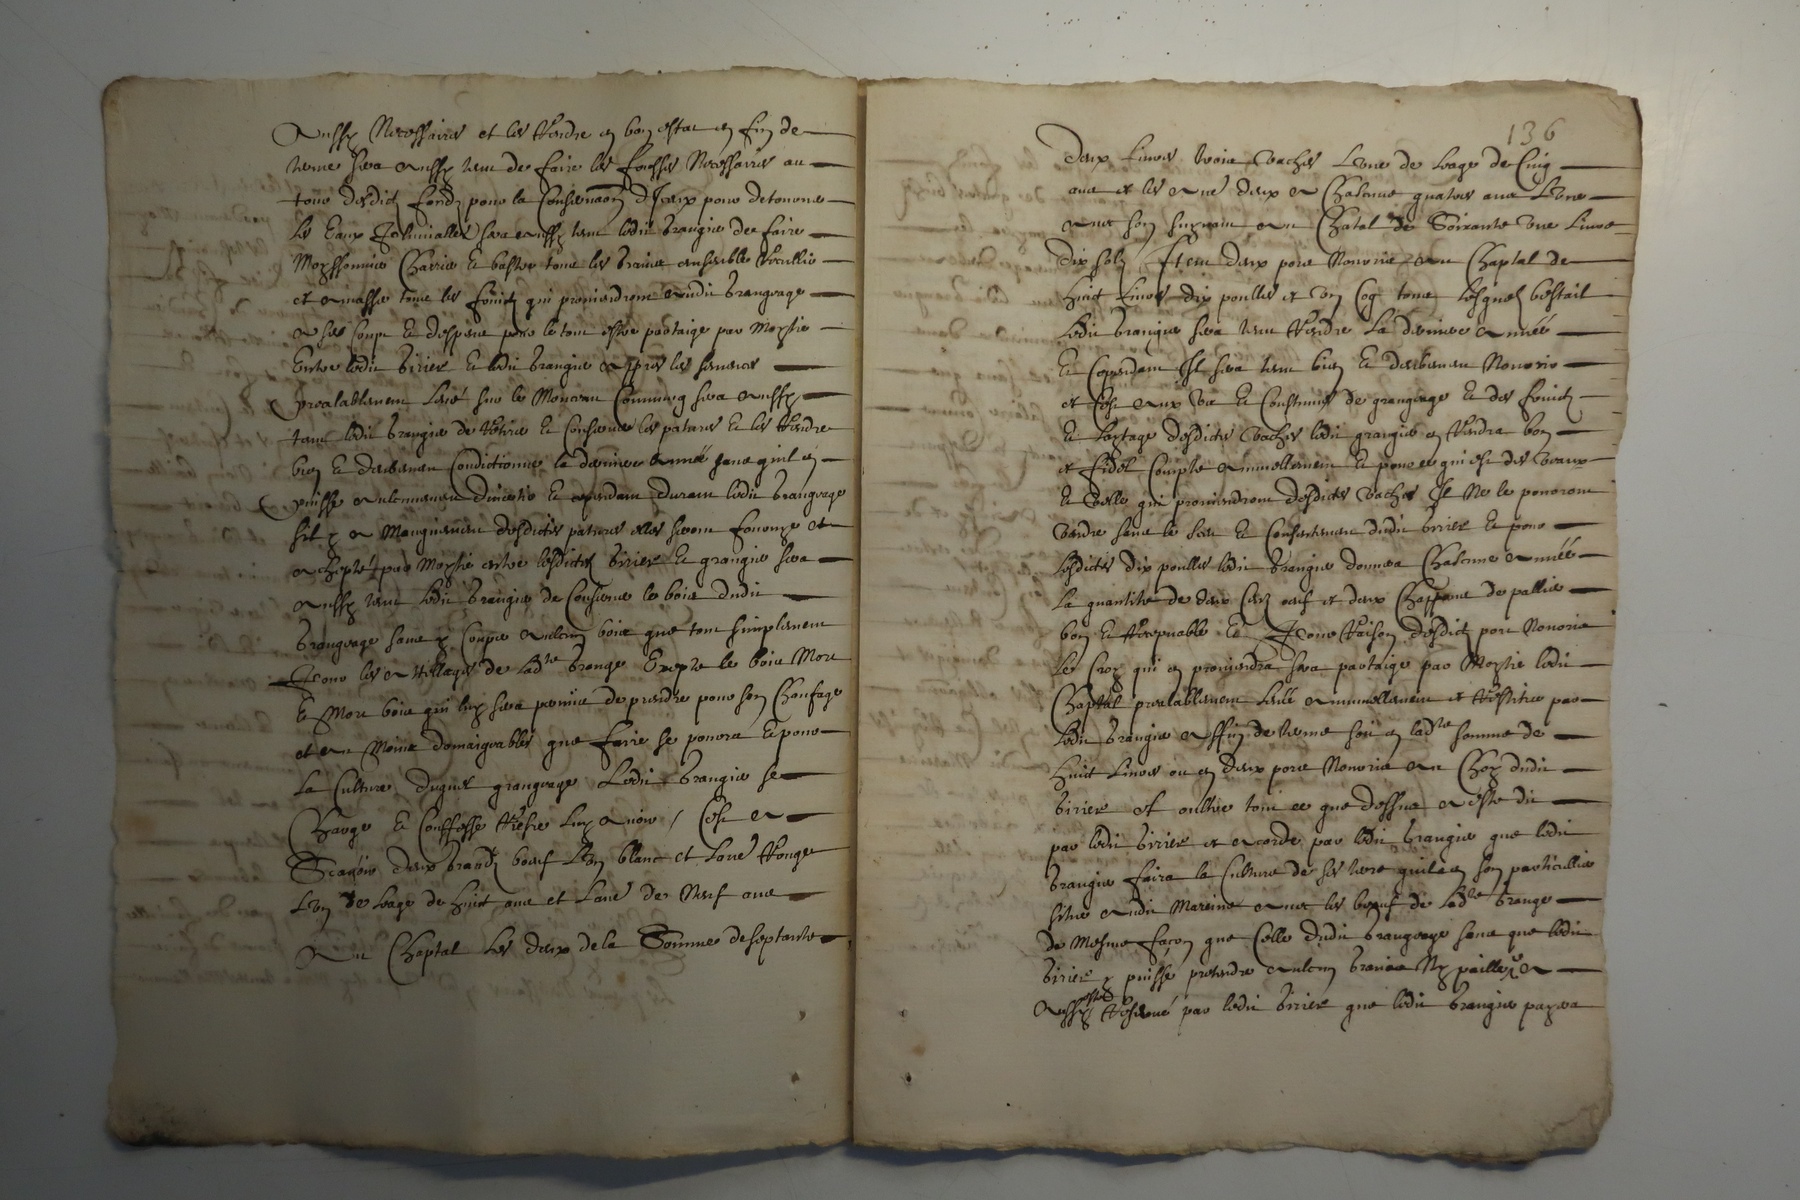 Aussy Necessaires et les Rendre en bon estat en fin de
terme sera aussy tenu de faire les fossés Necessaires au
tour desdictz fondz pour la Conservaon d'Iceux pour detourner
les Eaux sera aussy tenu ledit Grangier de faire
Moyssonner Charrier et battre tous les Grains ensemble Recullir
et amasser tous les fruictz qui proviendront audit Grangeage
a ses Coups et despens pour le tout estre partaigé par Moytié
Entre ledit Sirier et ledit Grangier apres les semences
prealablement levé sur le Monceau Commung sera aussy
tenu ledit Grangier de Retirer et Conserver les patures et les Rendre
bien et deubement Condictionné la derniere année sans quil en
puisse aulcunement divertir et cependant Durant ledit Grangeage
sil y a Manquement desdictes patures elles seront fournye et
achepté par Moytié entre lesdictz Sirier et grangier sera
aussy tenu ledit Grangier de Conserver le bois dudit
Grangeage sans y Couper aulcung bois que tout simplement
pour les de ladte Grange Excepté le bois Mort
et Mort bois qui luy sera permis de prendre pour son Chaufage
et au Moins domaigeables que faire se pourra Et pour
la Culture duquel grangeage Ledit Grangier se
Charge et Confesse luy avoir Cest a
Scavoir deux Grandz boeuf Lun blanc et Laue Rouge
Lun de leage de huict ans et Laue de Neuf ans
Au Chaptal les deux de la Somme de septante
136
deux Livres trois vaches Lune de leage de Cinq
ans et les aue deux a Chascune quatres ans Lune
avec son au Chatal de Soixante une Livre
dix solz Item deux porc Nourrir au Chaptal de
huict Livres dix poulles et un Coq tous Lesquelz bestail
Ledit Grangier sera tenu Rendre La derniere année
Et Cependant Il sera tenu bien et deubement Nourrir
et aux us et Coustumes de grangeage Et des fruictz
et laytage desdictes vaches ledit grangier en Rendra bon
et fidel Compte annuellement Et pour ce qui est des veaux
et velle qui proviendront desdictes vaches Il Ne le pourront
vendre sans le sceu et Consentement dudit Sirier Et pour
lesdictes dix poulles ledit Grangier donnera Chascune année
la quantité de deux Cens oeuf et deux Chappons de pallier
bon et Recepvable Et pour Raison desdictz porc Nourrir
le Croy qui en proviendra sera partaigé par Moytié ledit
Chaptal prealablement levé annuellement et Restitué par
Ledit Grangier affin de terme soit en ladte somme de
huict Livres ou en deux porc Nourrir au Choy dudit
Sirier et oultre tout ce que dessus a esté dit
par ledit Sirier et acordé par ledit Grangier que ledit
Grangier faira la Culture de ses terre quil a en son particullier
situé audit avec les boeuf de ladte Grange
de Mesme façon que Celle dudit Grangeage sans que ledit
Sirier y puisse pretendre aulcun Grains Ny paille a
esté
Aussy Reservé par ledit Sirier que ledit Grangier payera